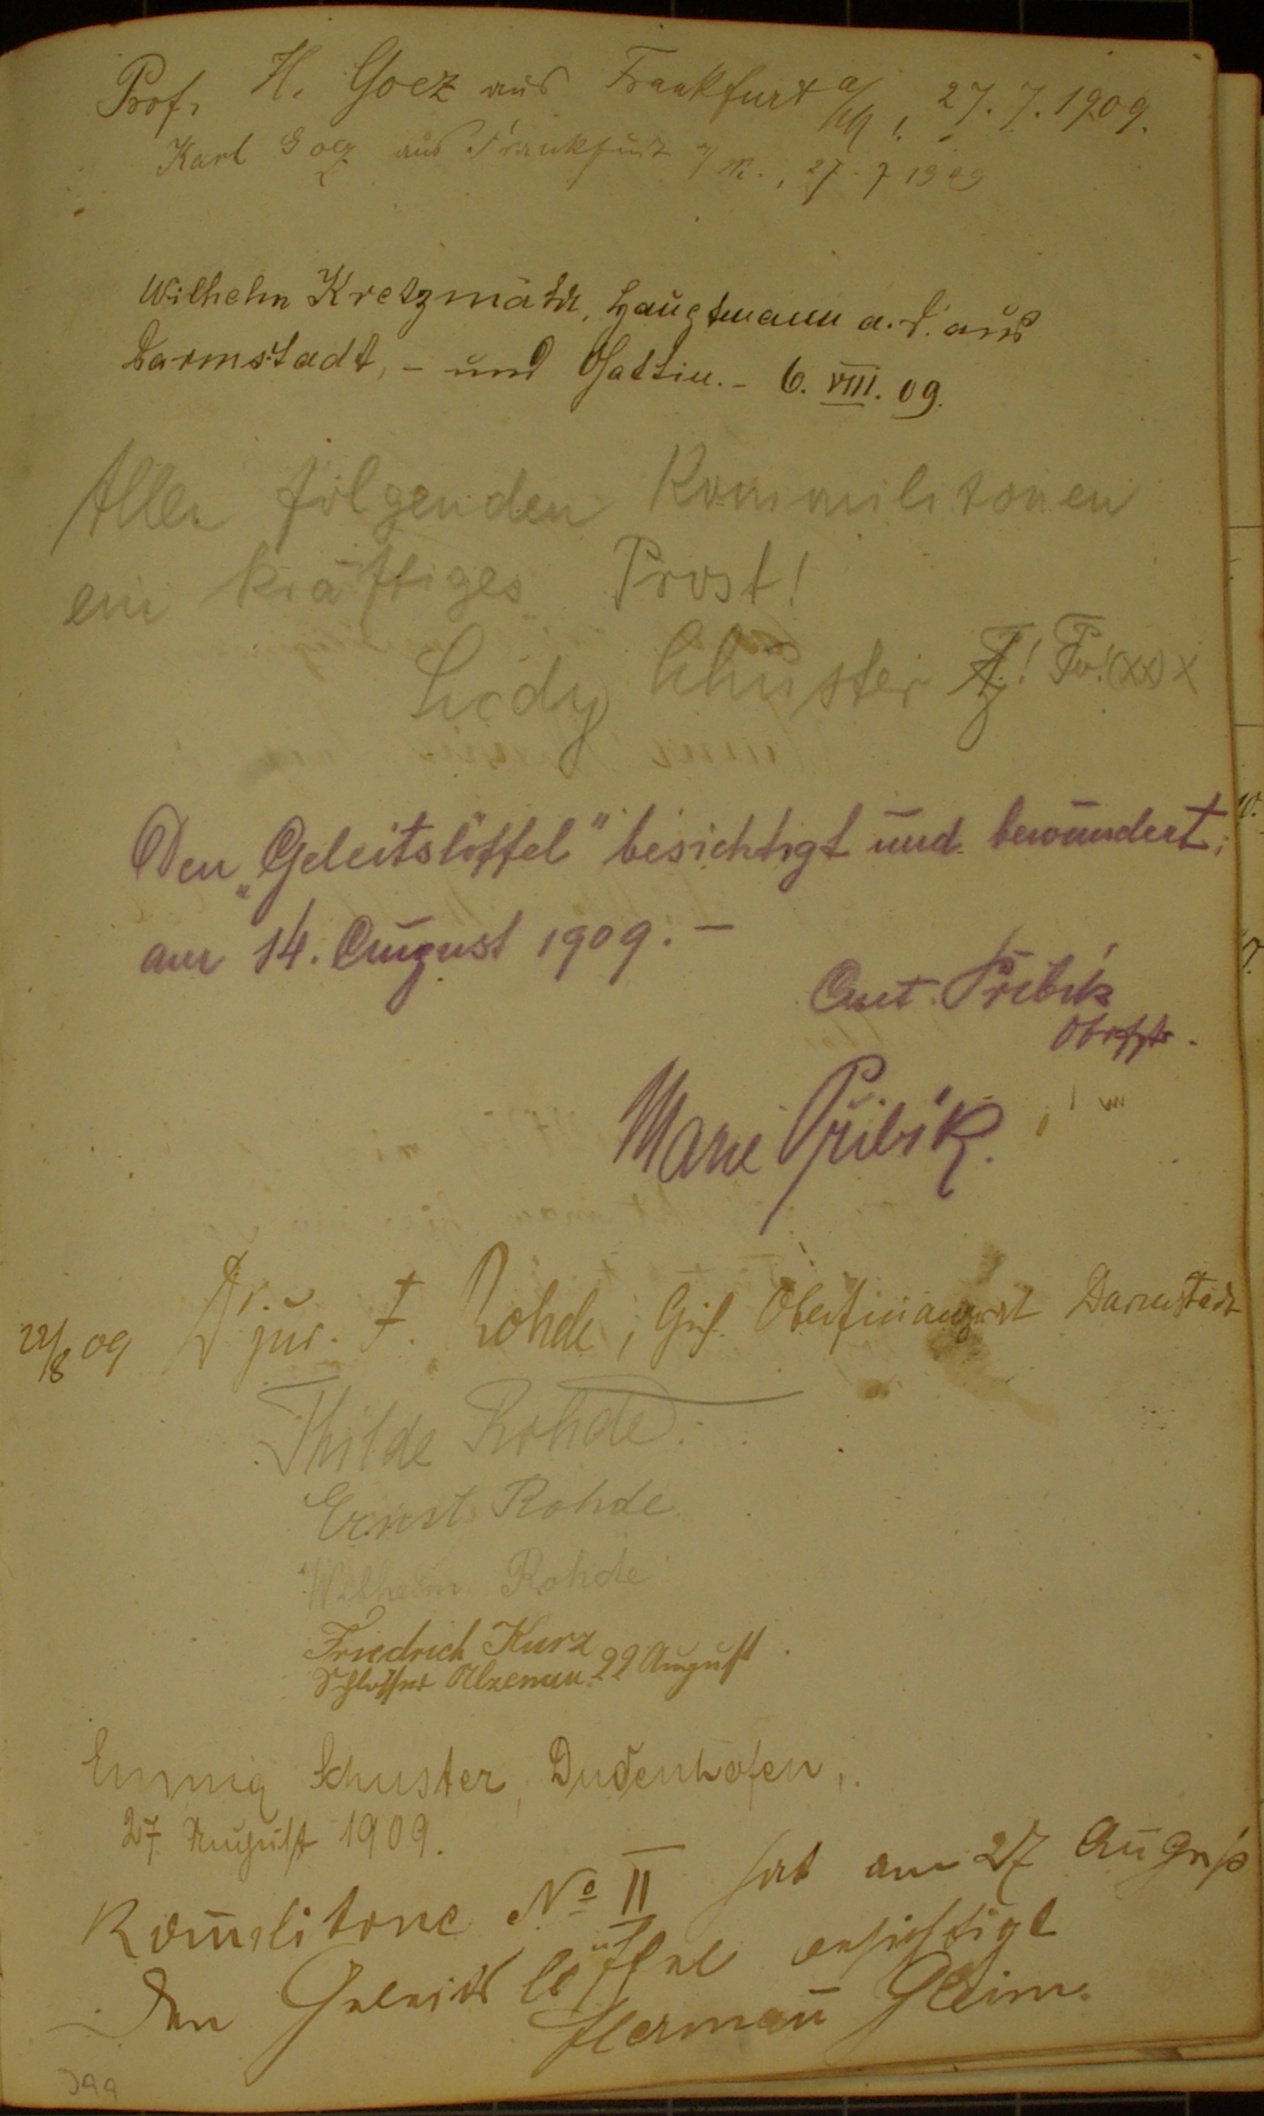 Prof. H. Goez aus Frankfurt a/M., 27.7.1909.
Karl Goez aus Frankfurt a/M., 27.7 1909
Wilhelm Kretzmann, Hauptmann a. D. aus
Darmstadt, - und Gattin. - 6. VIII. 09.
Allen folgenden Kommilitonen
ein kräftiges Prost!
Schuster
Den „Geleitslöffel" besichtigt und bewundert;
am 14. August 1909. -
Ant. Přibík
Marie Přibík.
22/8 09 Dr. jur. F. Rohde, Geh. Oberfinanzrat Darmstadt
Thilde Rohde.
Ernst Rohde
Wilhelm Rohde
Friedrich Kurz
Schlosser Alzenau 22 August
Schuster, Dudenhofen,
27. August 1909.
Kom̅ilitone No II hat am 27 August
den Geleitslöffel besichtigt
Herman̅